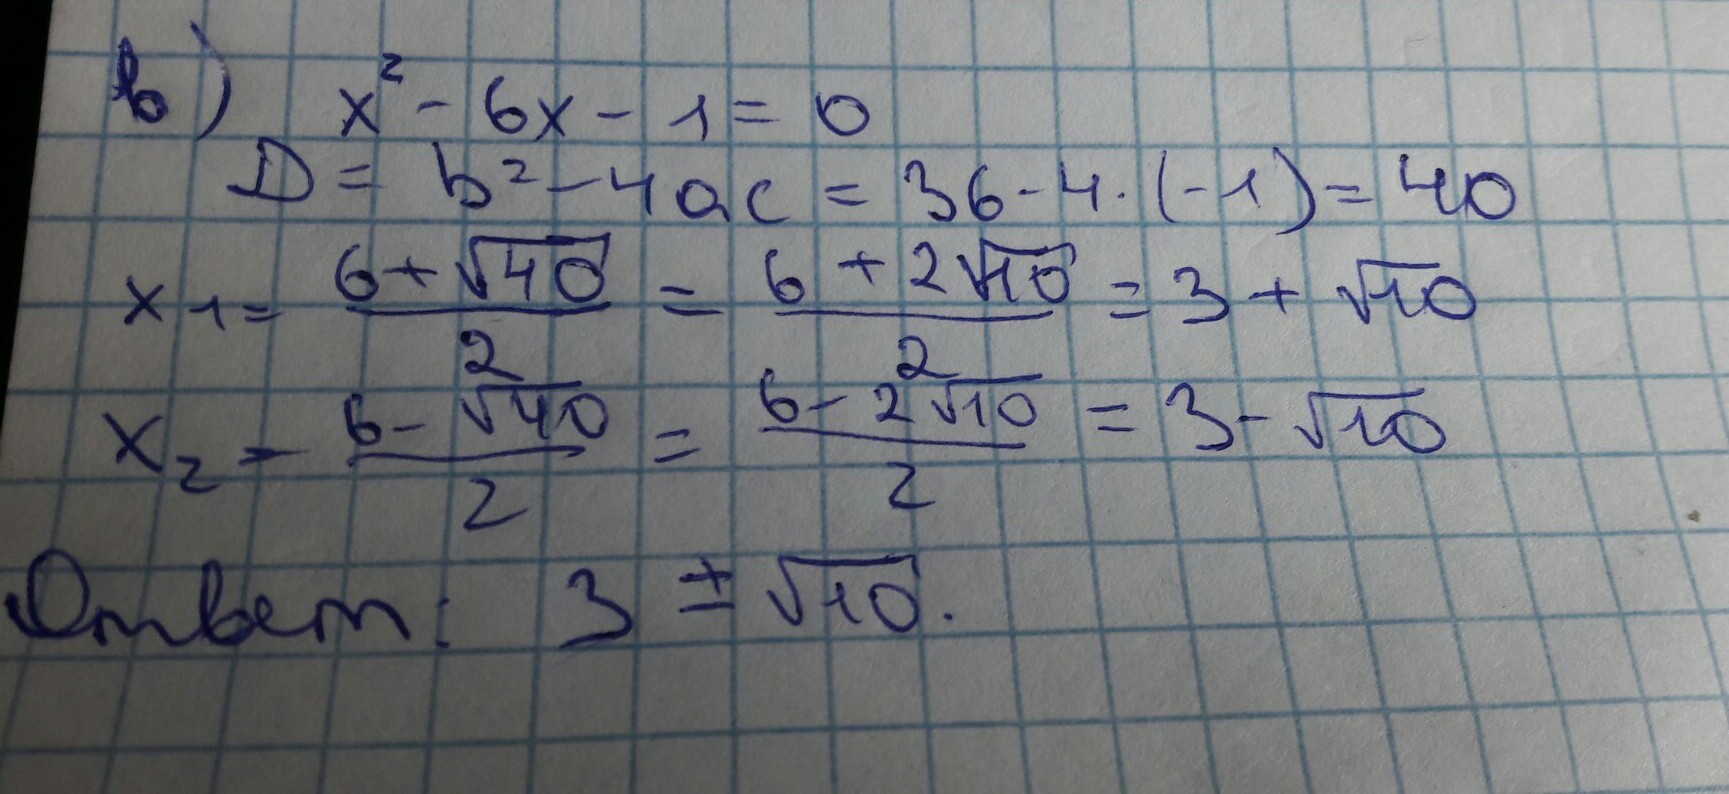 в) x² - 6x - 1 = 0
D = b² - 4ac = 36 - 4 · (-1) = 40
x₁ = (6 + √40)/2 = (6 + 2√10)/2 = 3 + √10
x₂ = (6 - √40)/2 = (6 - 2√10)/2 = 3 - √10
Ответ: 3 ± √10.